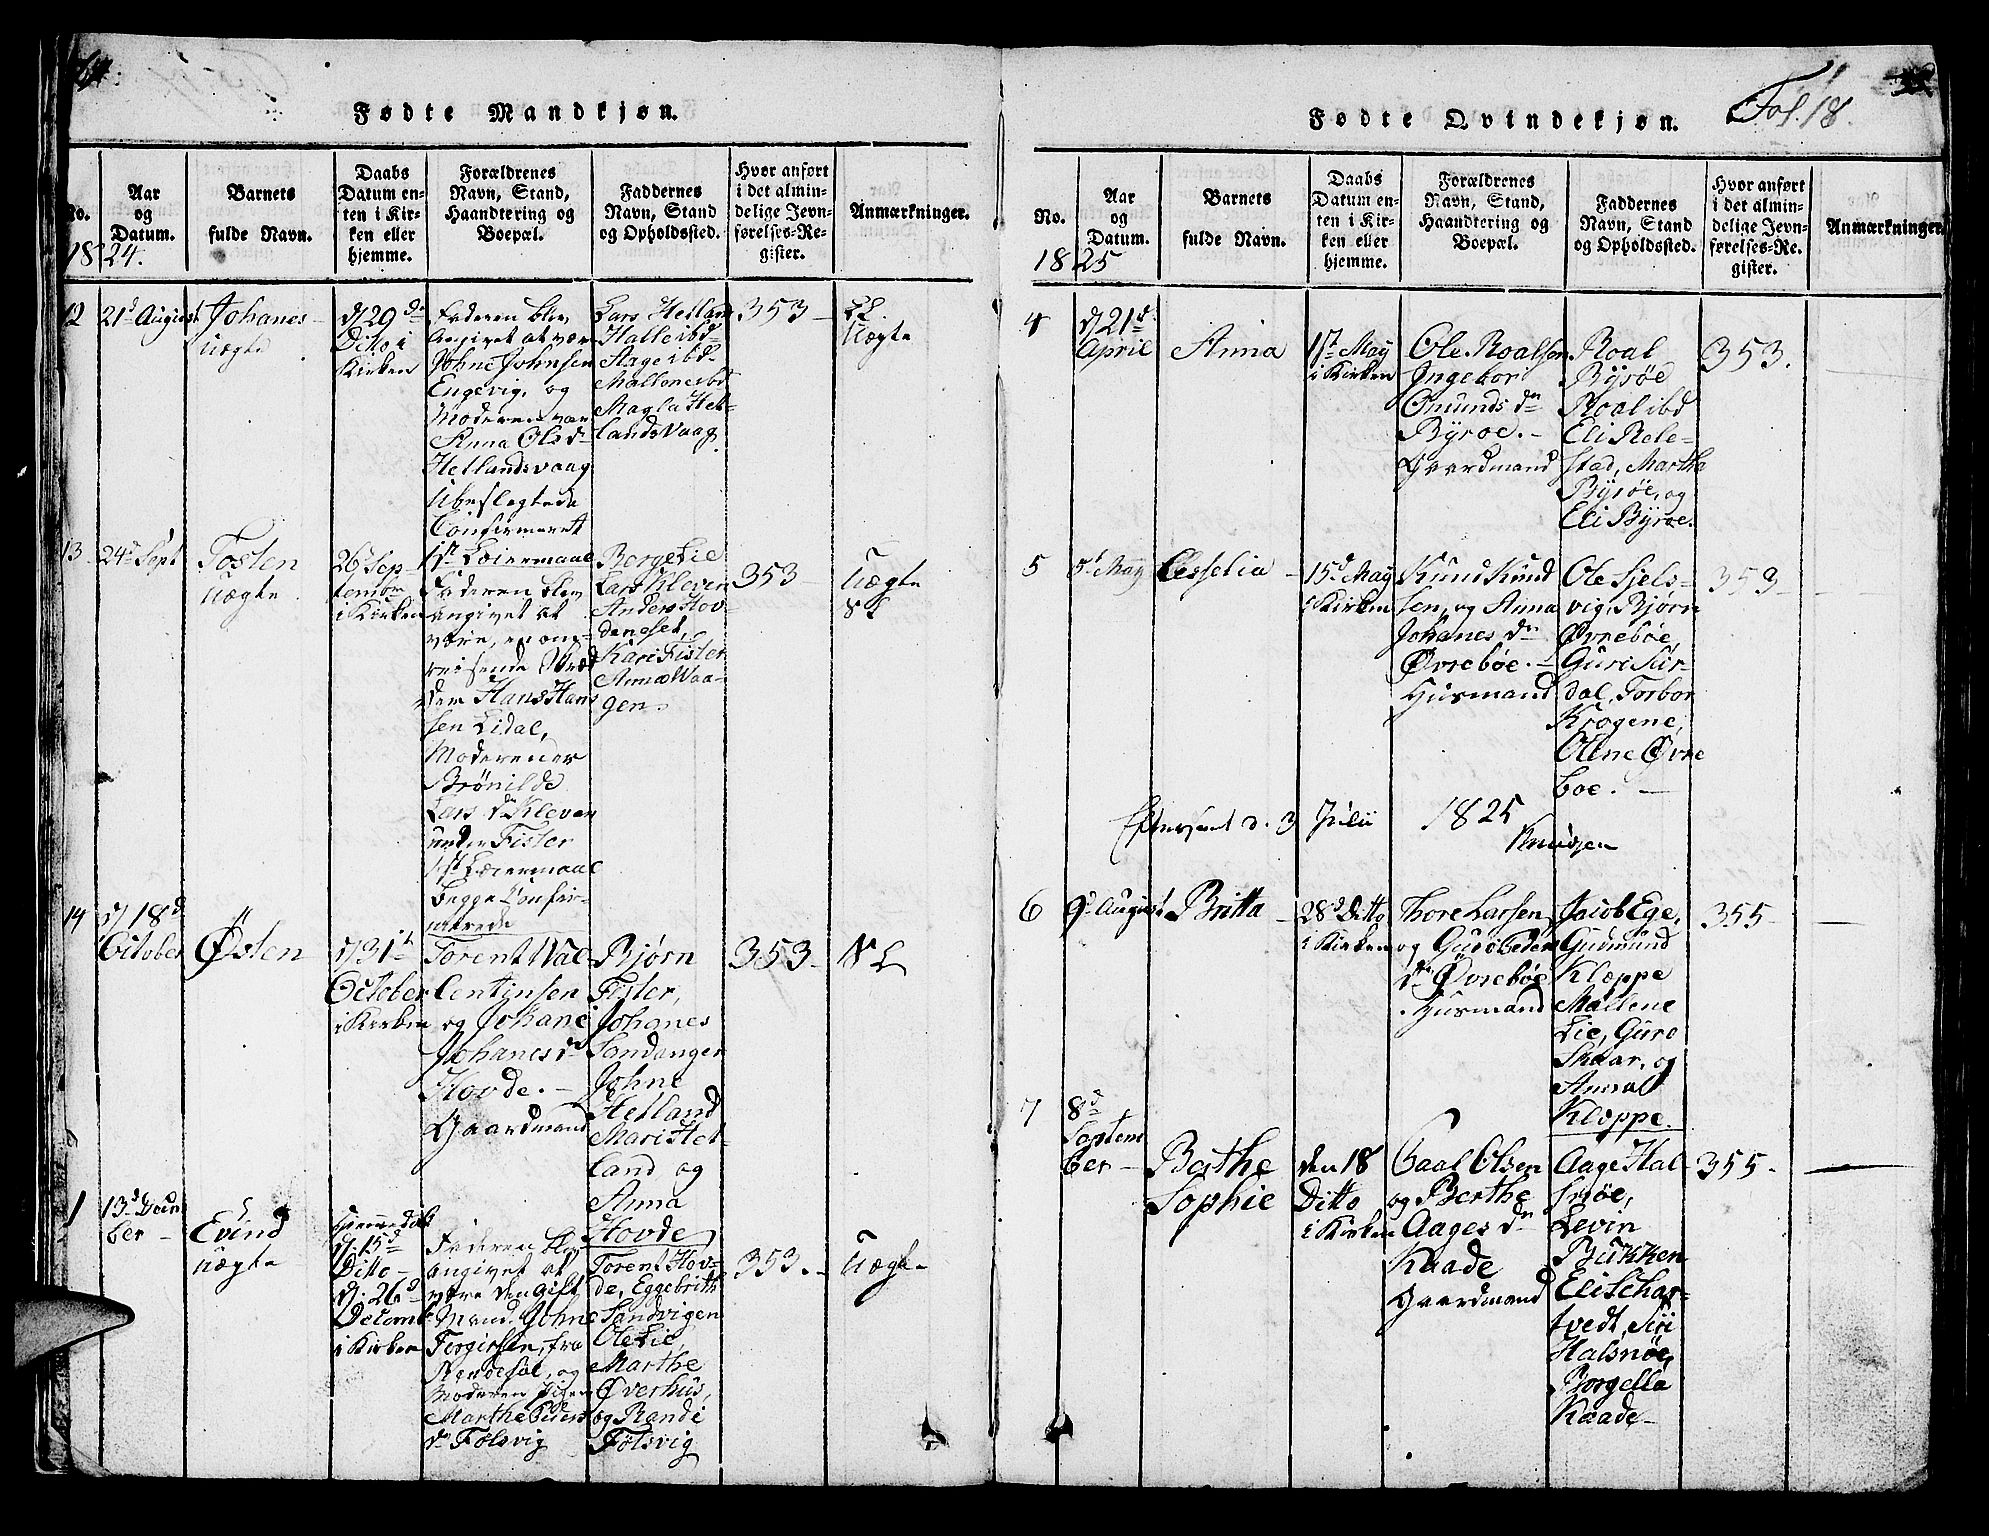 Fødte Mandkjøn.
No.
Aar
og
Datum.
Barnets
fulde Navn.
Daabs
Datum en-
ten i Kir-
ken eller
hjemme.
Forældrenes
Navn, Stand,
Haandtering og
Boepæl.
Faddernes
Navn, Stand
og Opholdssted.
Hvor anført
i det almin-
delige Jevn-
førelses-Re-
gister.
Anmærkninger.
1824.
12
21d August
Johanes
uægte
d 29de
Ditto i
Kirken
Faderen blev
angivet at være
Johne Johnsen
Engevig, og
Moderen var
Anna Olsdn
Hellandsvaag
Ubeslegtede
Confirmeret
1st Leiermaal
Lars Helland
Halle ibd
Aage ibd
Maltene ibd
Magla Hel-
landsvaag
353
Uægte
13
24d Sept
Tosten
uægte
26d Sep-
tembr
i Kirken
Faderen blev
angivet at
være, en om-
reisende Skræd
der Hans Han
sen Lidal,
Moderen er
Brønilde
Lars dn Kleven
under Fister
1st Leiermaal
begge Confir-
merede
Borge Lie
Lars Kleven
Anders Hov-
deneset,
Kari Fister
Anna Waa-
gen.
353
Uægte
14
d 18d
October
Østen
d 31te
October
i Kirken
Torent Wal-
lentinsen
og Johane
Johanes dn
Hovde.
Gaardmand
Bjørn
Fister,
Johanes
Sandanger
Johne
Helland
Mari Hel-
land og
Anna
Hovde
353
1
13d Decem
ber
Evind
uægte
hjemmedøbt
d 15d
Ditto
d: 26d
Decemb
i Kirken
Faderen blev
angivet at
være den Gift
Mand. Johne
Torgersen, fra
og
Moderen Pigen
Marthe Peders
dn Følsvig
Torent Hov-
de, Eggebrith
Sandvigen
Ole Lie
Marthe
Øverhus,
og Randi
Følsvig
353.
Uægte
Fødte Qvindekjøn.
Fol. 18.
No.
Aar
og
Datum.
Barnets
fulde Navn.
Daabs
Datum en-
ten i Kir-
ken eller
hjemme.
Forældrenes
Navn, Stand,
Haandtering og
Boepæl.
Faddernes
Navn, Stand
og Opholdssted.
Hvor anført
i det almin-
delige Jevn-
førelses-Re-
gister.
Anmærkninger.
1825
4
d 21d
April
Anna
1st May
i Kirken
Ole Roalsen
Ingebor
Omunds dn
Byrøe.
Gaardmand
Roal
Byrøe
Roal ibd
Eli Rele-
stad, Martha
Byrøe, og
Eli Byrøe.
353.
5
5d May
Cesselia
15d May
i Kirken
Knud Knud
sen, og Anna
Johanes dn
Øvrebøe.
Husmand
Ole Fjels-
vig, Bjørn
Øvrebøe,
Guri Sur-
dal, Torbor
Krogene,
Olene Øvre
boe.
353
Efterseet d. 3 Julii 1825
Knudsen
6
9d August
Britta
28d Ditto
i Kirken
Thore Larsen
og Guro Peders
dn Øvrebøe
Husmand
Jacob Ege,
Gudmund
Kleppe
Maltene
Lie, Guro
Skaar, og
Anna
Kleppe.
355
7
8d
Septem
ber
Bathe
Sophie
den 18
Ditto
i Kirken
Gaal Olsen
og Berthe
Aages dn
Kaade
Gaardmand
Aage Hal-
snøe,
Levin
Bukken
Eli Schar-
tvedt, Siri
Halsnøe,
Borgella
Kaade
355.